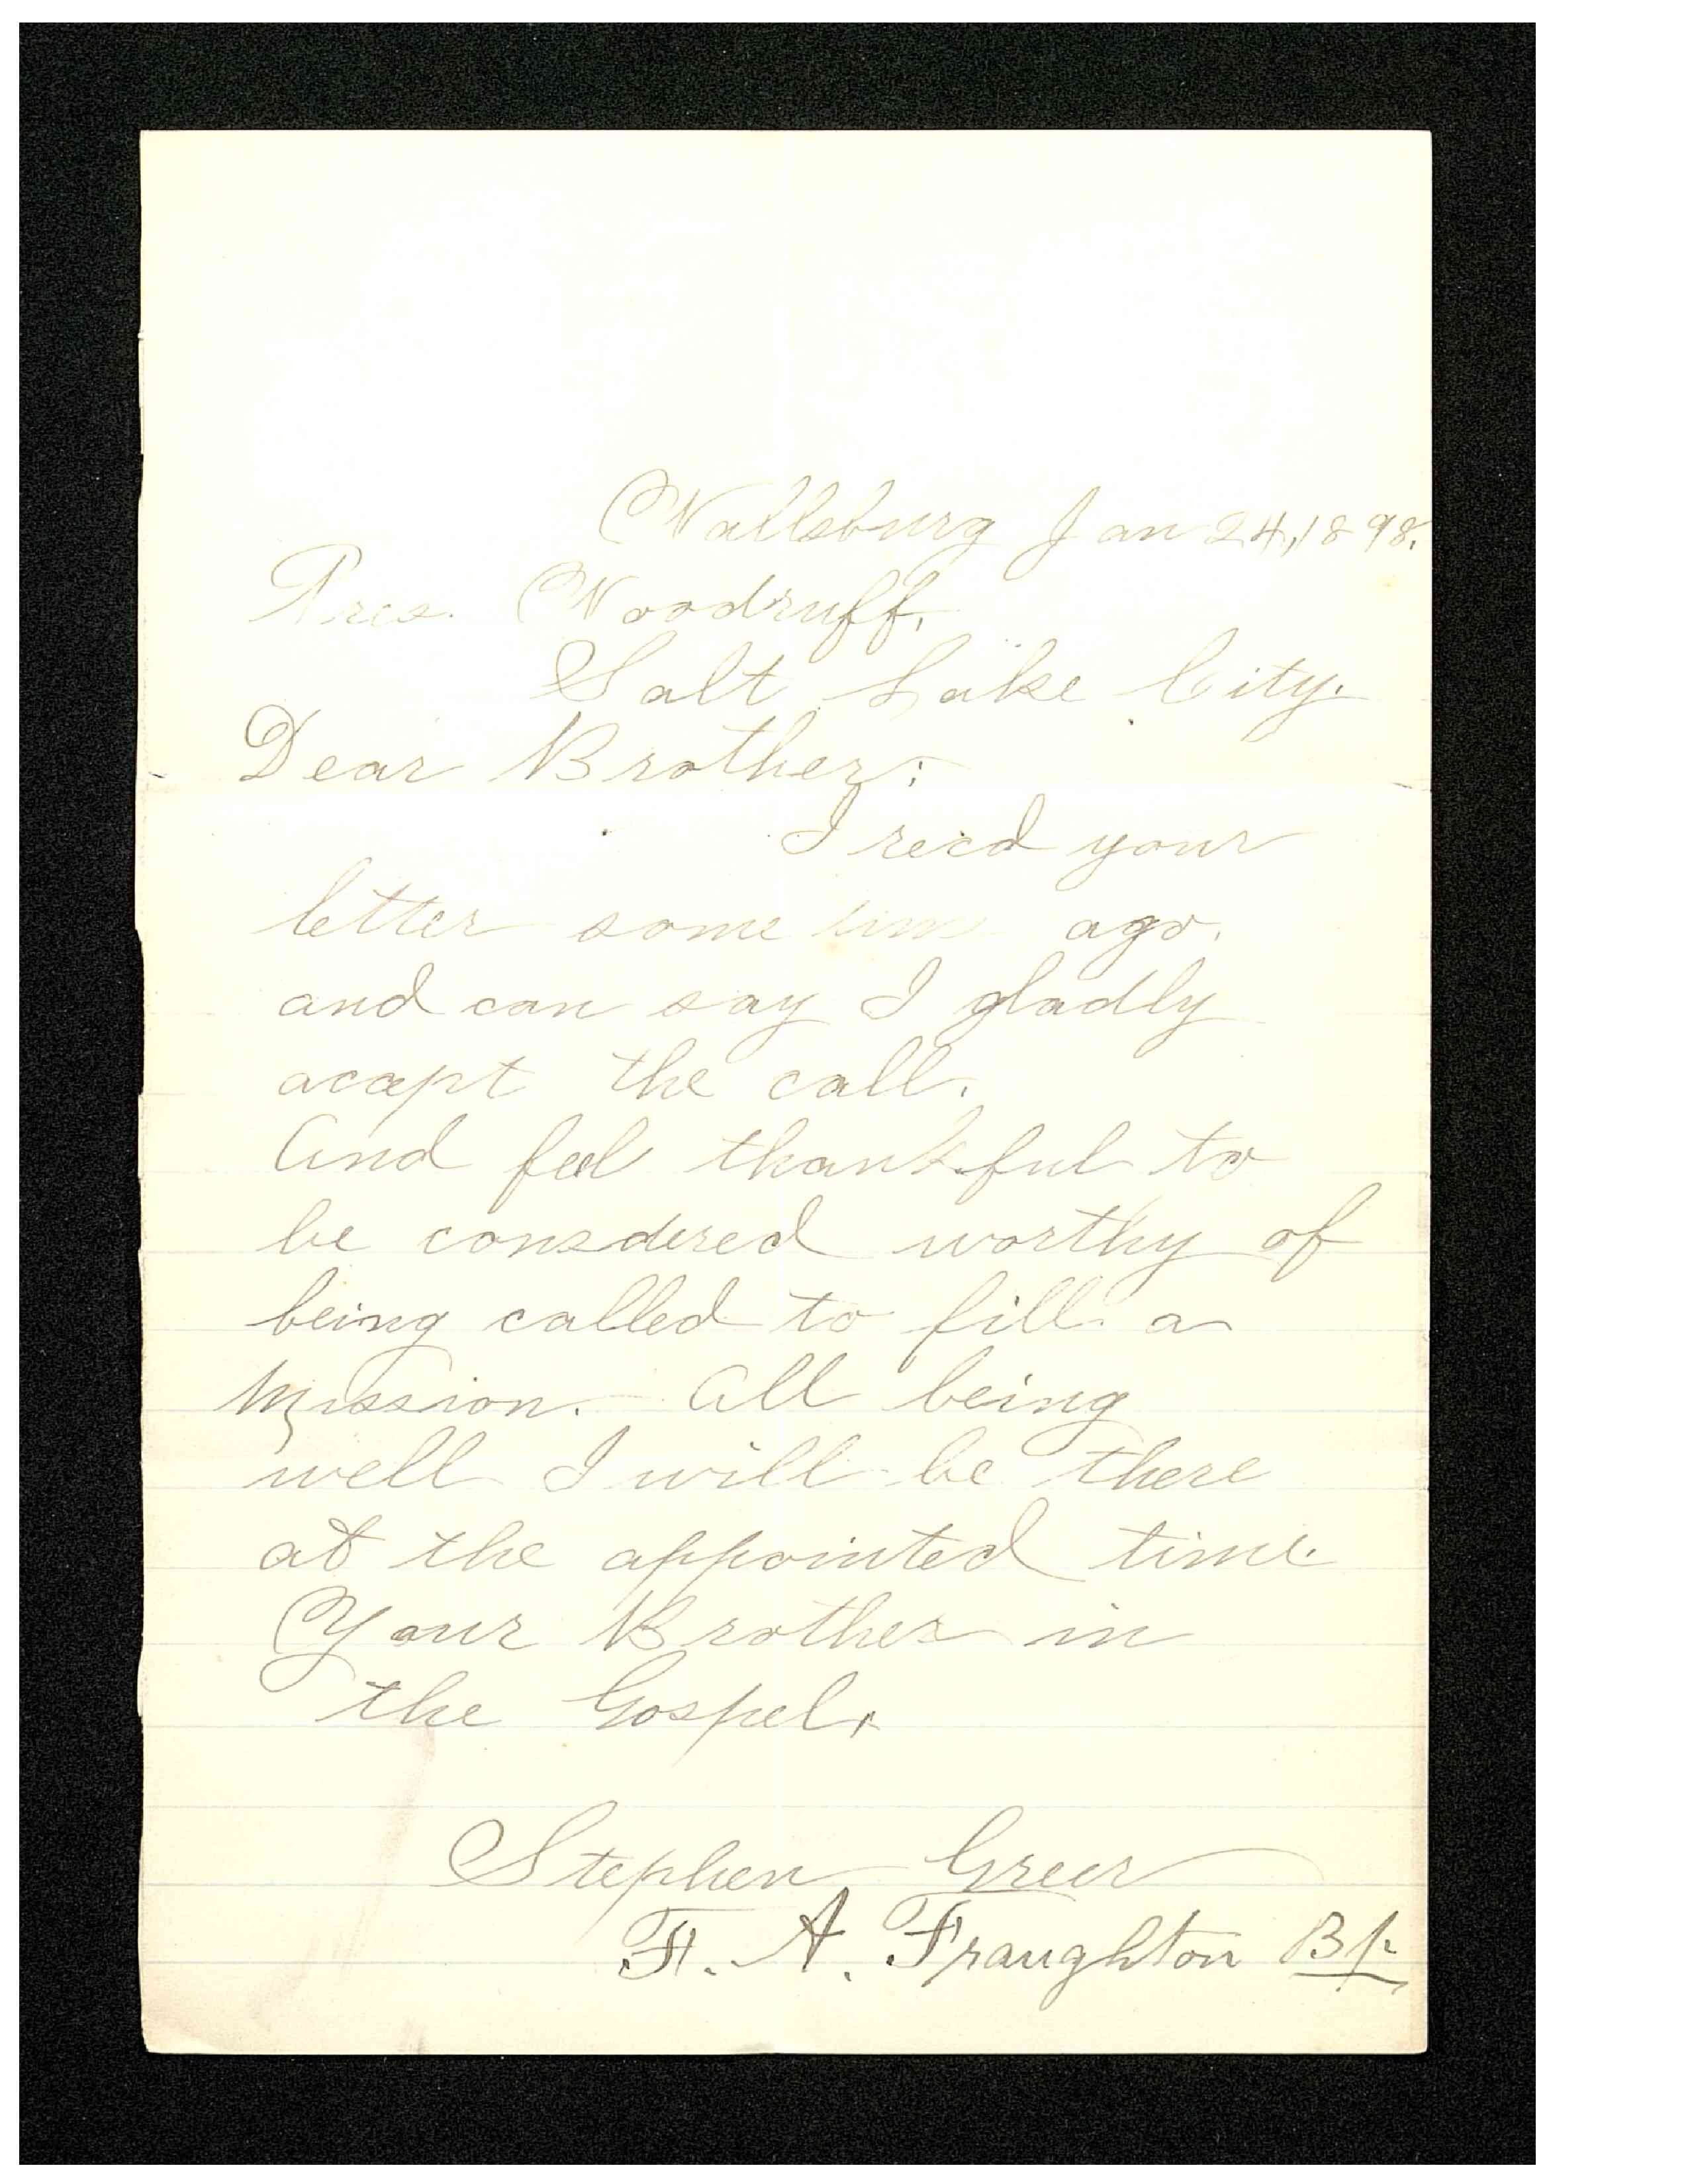 Wallsburg Jan 24, 1898.
Pres. Woodruff.
Salt Lake City.
Dear Brother:
I recd your
letter some time ago.
and can say I gladly
acept the call.
And feel thankful to
be consdered worthy of
being called to fill a
Mission. All being
well I will be there
at the appointed time.
Your Brother in
the Gospel.
Stephen Greer
F. A. Fraughton Bp.